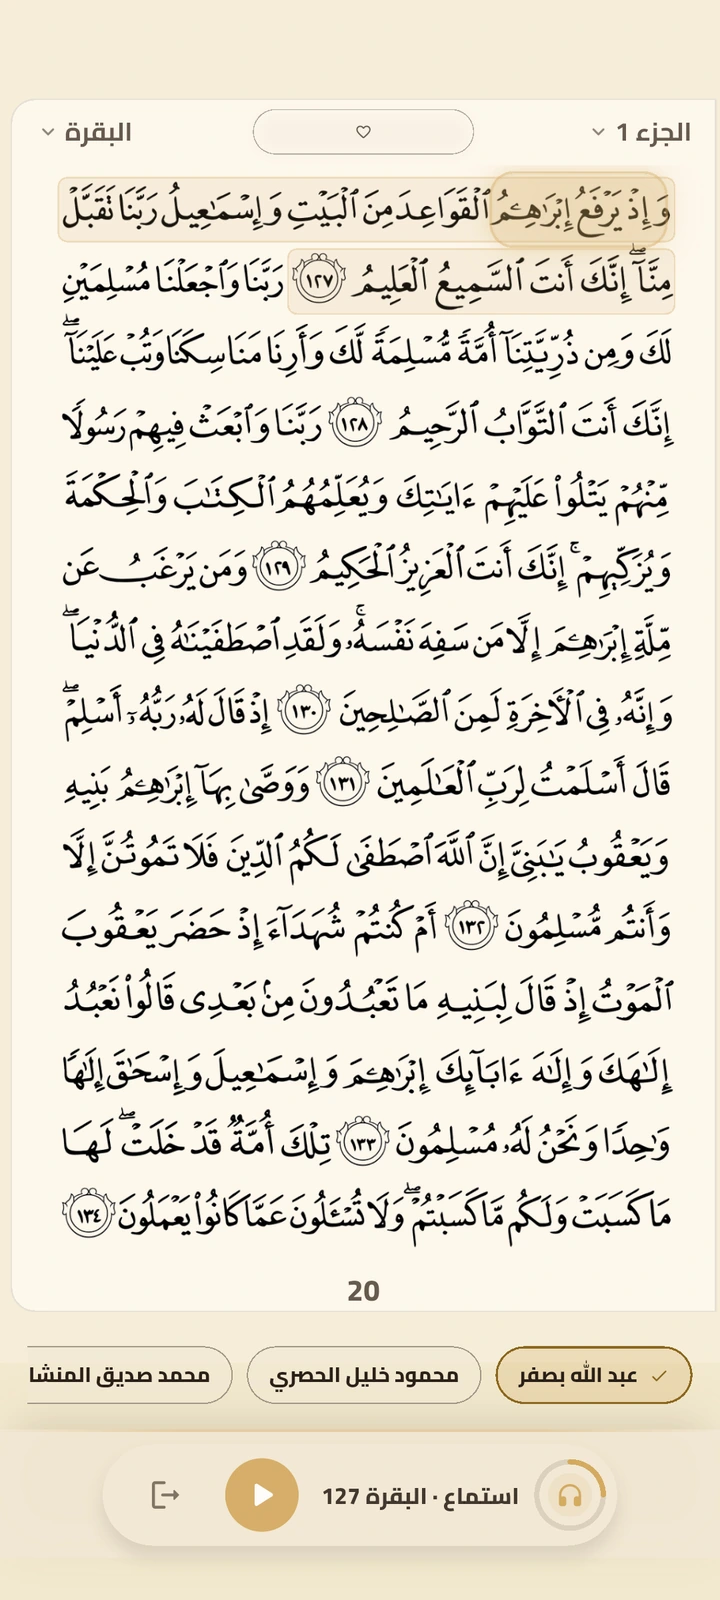 الجزء 1
البقرة
وَإِذْ يَرْفَعُ إِبْرَٰهِـۧمُ ٱلْقَوَاعِدَ مِنَ ٱلْبَيْتِ وَإِسْمَـٰعِيلُ رَبَّنَا تَقَبَّلْ
مِنَّآ ۖ إِنَّكَ أَنتَ ٱلسَّمِيعُ ٱلْعَلِيمُ ١٢٧ رَبَّنَا وَٱجْعَلْنَا مُسْلِمَيْنِ
لَكَ وَمِن ذُرِّيَّتِنَآ أُمَّةً مُّسْلِمَةً لَّكَ وَأَرِنَا مَنَاسِكَنَا وَتُبْ عَلَيْنَآ ۖ
إِنَّكَ أَنتَ ٱلتَّوَّابُ ٱلرَّحِيمُ ١٢٨ رَبَّنَا وَٱبْعَثْ فِيهِمْ رَسُولًا
مِّنْهُمْ يَتْلُوا۟ عَلَيْهِمْ ءَايَـٰتِكَ وَيُعَلِّمُهُمُ ٱلْكِتَـٰبَ وَٱلْحِكْمَةَ
وَيُزَكِّيهِمْ ۚ إِنَّكَ أَنتَ ٱلْعَزِيزُ ٱلْحَكِيمُ ١٢٩ وَمَن يَرْغَبُ عَن
مِّلَّةِ إِبْرَٰهِـۧمَ إِلَّا مَن سَفِهَ نَفْسَهُۥ ۚ وَلَقَدِ ٱصْطَفَيْنَـٰهُ فِى ٱلدُّنْيَا ۖ
وَإِنَّهُۥ فِى ٱلْـَٔاخِرَةِ لَمِنَ ٱلصَّـٰلِحِينَ ١٣٠ إِذْ قَالَ لَهُۥ رَبُّهُۥٓ أَسْلِمْ ۖ
قَالَ أَسْلَمْتُ لِرَبِّ ٱلْعَـٰلَمِينَ ١٣١ وَوَصَّىٰ بِهَآ إِبْرَٰهِـۧمُ بَنِيهِ
وَيَعْقُوبُ يَـٰبَنِىَّ إِنَّ ٱللَّهَ ٱصْطَفَىٰ لَكُمُ ٱلدِّينَ فَلَا تَمُوتُنَّ إِلَّا
وَأَنتُم مُّسْلِمُونَ ١٣٢ أَمْ كُنتُمْ شُهَدَآءَ إِذْ حَضَرَ يَعْقُوبَ
ٱلْمَوْتُ إِذْ قَالَ لِبَنِيهِ مَا تَعْبُدُونَ مِنۢ بَعْدِى قَالُوا۟ نَعْبُدُ
إِلَـٰهَكَ وَإِلَـٰهَ ءَابَآئِكَ إِبْرَٰهِـۧمَ وَإِسْمَـٰعِيلَ وَإِسْحَـٰقَ إِلَـٰهًا
وَٰحِدًا وَنَحْنُ لَهُۥ مُسْلِمُونَ ١٣٣ تِلْكَ أُمَّةٌ قَدْ خَلَتْ ۖ لَهَا
مَا كَسَبَتْ وَلَكُم مَّا كَسَبْتُمْ ۖ وَلَا تُسْـَٔلُونَ عَمَّا كَانُوا۟ يَعْمَلُونَ ١٣٤
20
عبد الله بصفر
محمود خليل الحصري
محمد صديق المنشا
استماع · البقرة 127